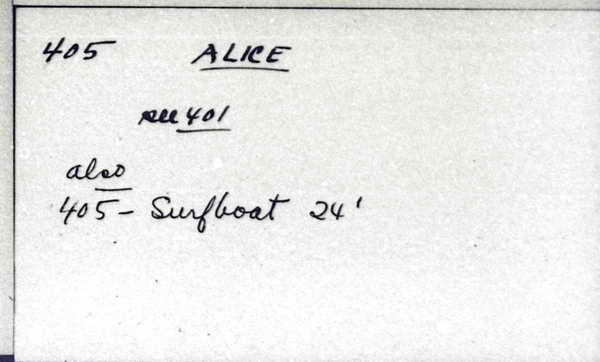 405 ALICE
see 401
also
405 - Surfboat 24'